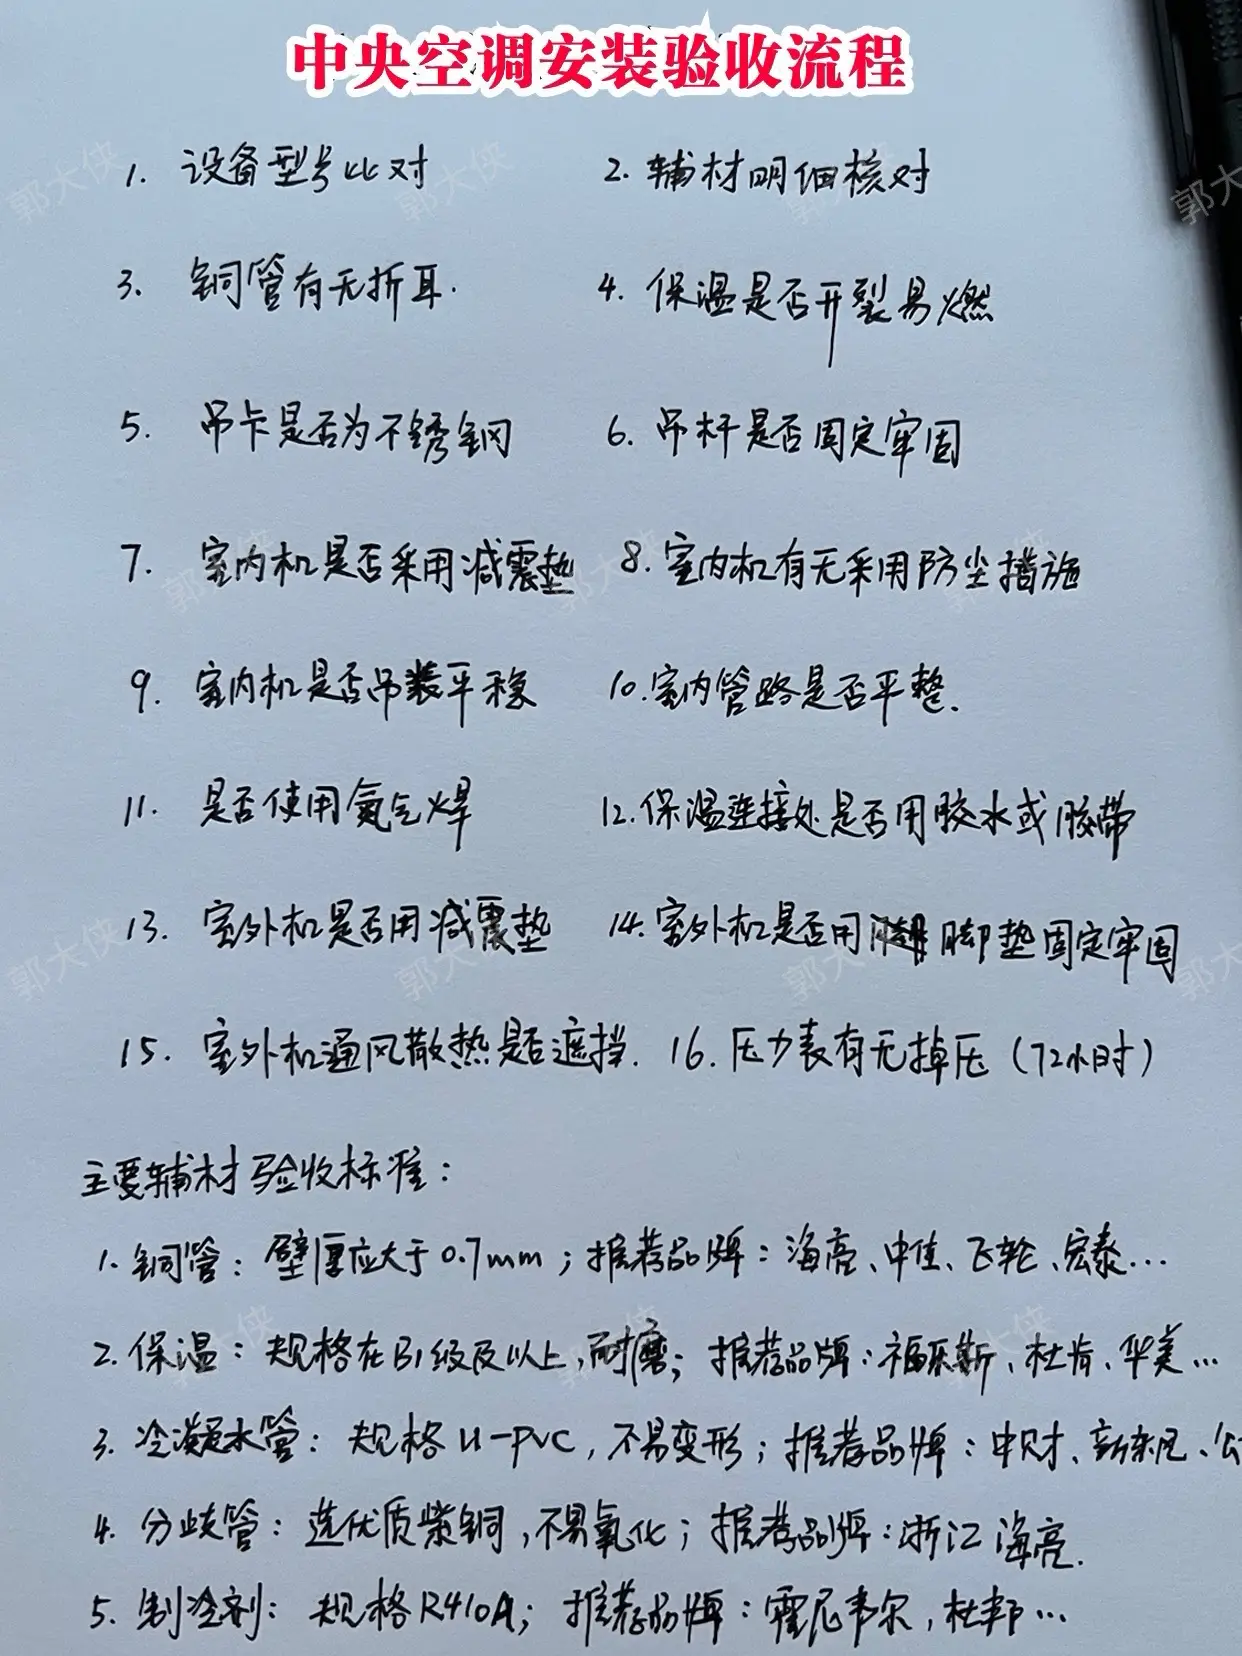 中央空调安装验收流程
1. 设备型号比对 2. 辅材明细核对
3. 铜管有无折耳. 4. 保温是否开裂易燃
5. 吊卡是否为不锈钢 6. 吊杆是否固定牢固
7. 室内机是否采用减震垫 8. 室内机有无采用防尘措施
9. 室内机是否吊装平稳 10. 室内管路是否平整.
11. 是否使用氮气焊 12. 保温连接处是否用胶水或胶带
13. 室外机是否用减震垫 14. 室外机是否用脚垫固定牢固
15. 室外机通风散热是否遮挡. 16. 压力表有无掉压(72小时)
主要辅材验收标准:
1. 铜管: 壁厚应大于0.7mm; 推荐品牌: 海亮、中佳、飞轮、宏泰...
2. 保温: 规格在B1级及以上, 耐磨; 推荐品牌: 福乐斯、杜肯、华美...
3. 冷凝水管: 规格U-PVC, 不易变形; 推荐品牌: 中财、、公
4. 分歧管: 选优质紫铜, 不易氧化; 推荐品牌: 浙江海亮.
5. 制冷剂: 规格R410A; 推荐品牌: 霍尼韦尔, 杜邦...
郭大侠